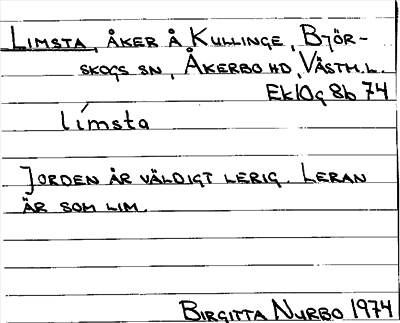 LIMSTA, ÅKER Å KULLINGE, BJÖR-
SKOGS SN, ÅKERBO HD, VÄSTM.L.
Ek10g8b 74
límsta
JORDEN ÄR VÄLDIGT LERIG. LERAN
ÄR SOM LIM.
BIRGITTA NURBO 1974